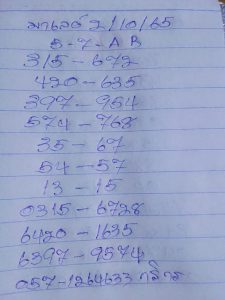 มาเลย์ 2/10/65
5-7-A B
315-672
420-635
397-954
574-763
35-67
54-57
13-15
0315-6728
6420-1635
6397-9574
057-1264633